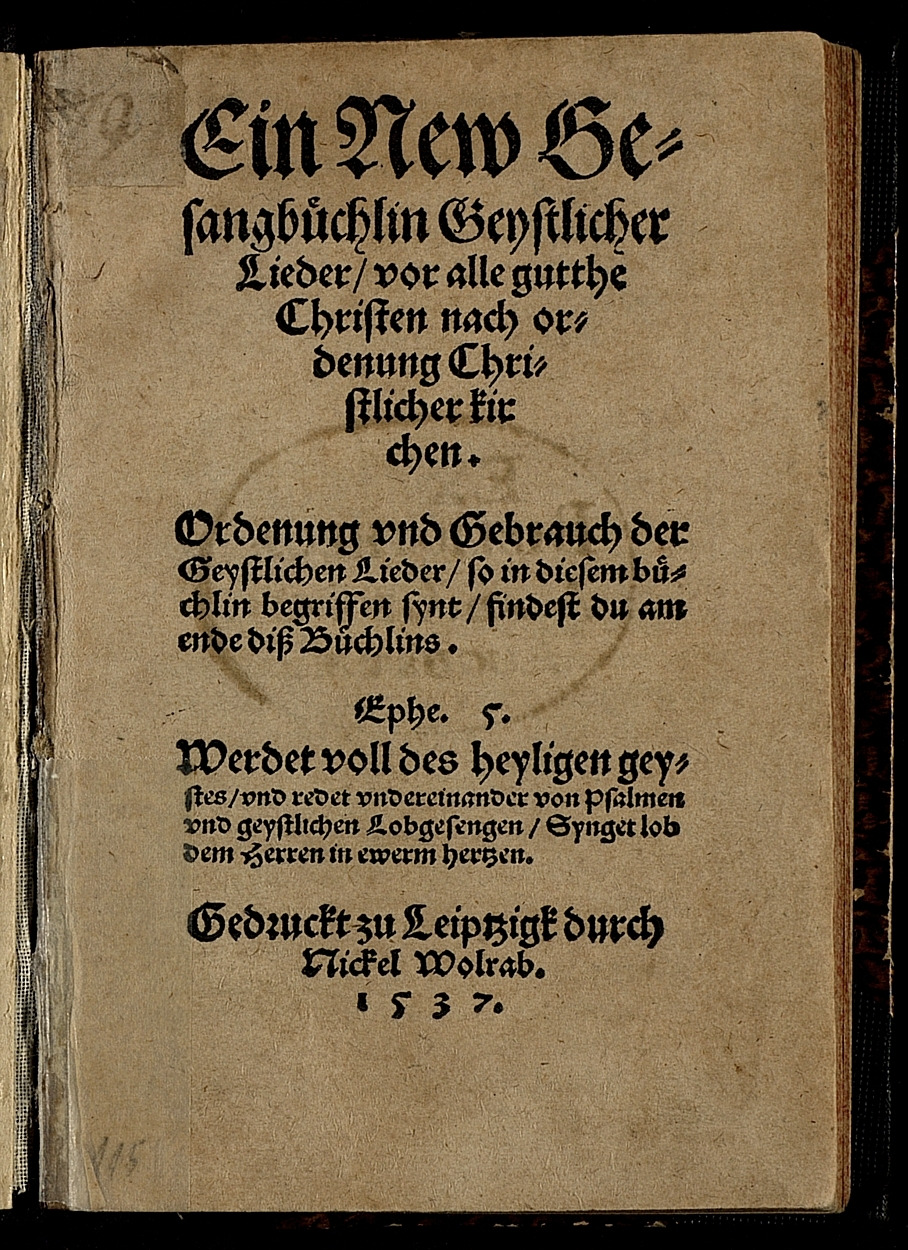 Ein New Ge⸗
ſangbuͤchlin Geyſtlicher
Lieder/ vor alle gutthe
Chriſten nach or⸗
denung Chri⸗
ſtlicher kir
chen.
Ordenung vnd Gebrauch der
Geyſtlichen Lieder/ ſo in dieſem buͤ⸗
chlin begriffen ſynt / findeſt du am
ende diß Buͤchlins.
Ephe. 5.
Werdet voll des heyligen gey⸗
ſtes/vnd redet vndereinander von Pſalmen
vnd geyſtlichen Lobgeſengen / Synget lob
dem Herren in ewerm hertzen.
Gedruckt zu Leiptzigk durch
Nickel Wolrab.
1 5 3 7.